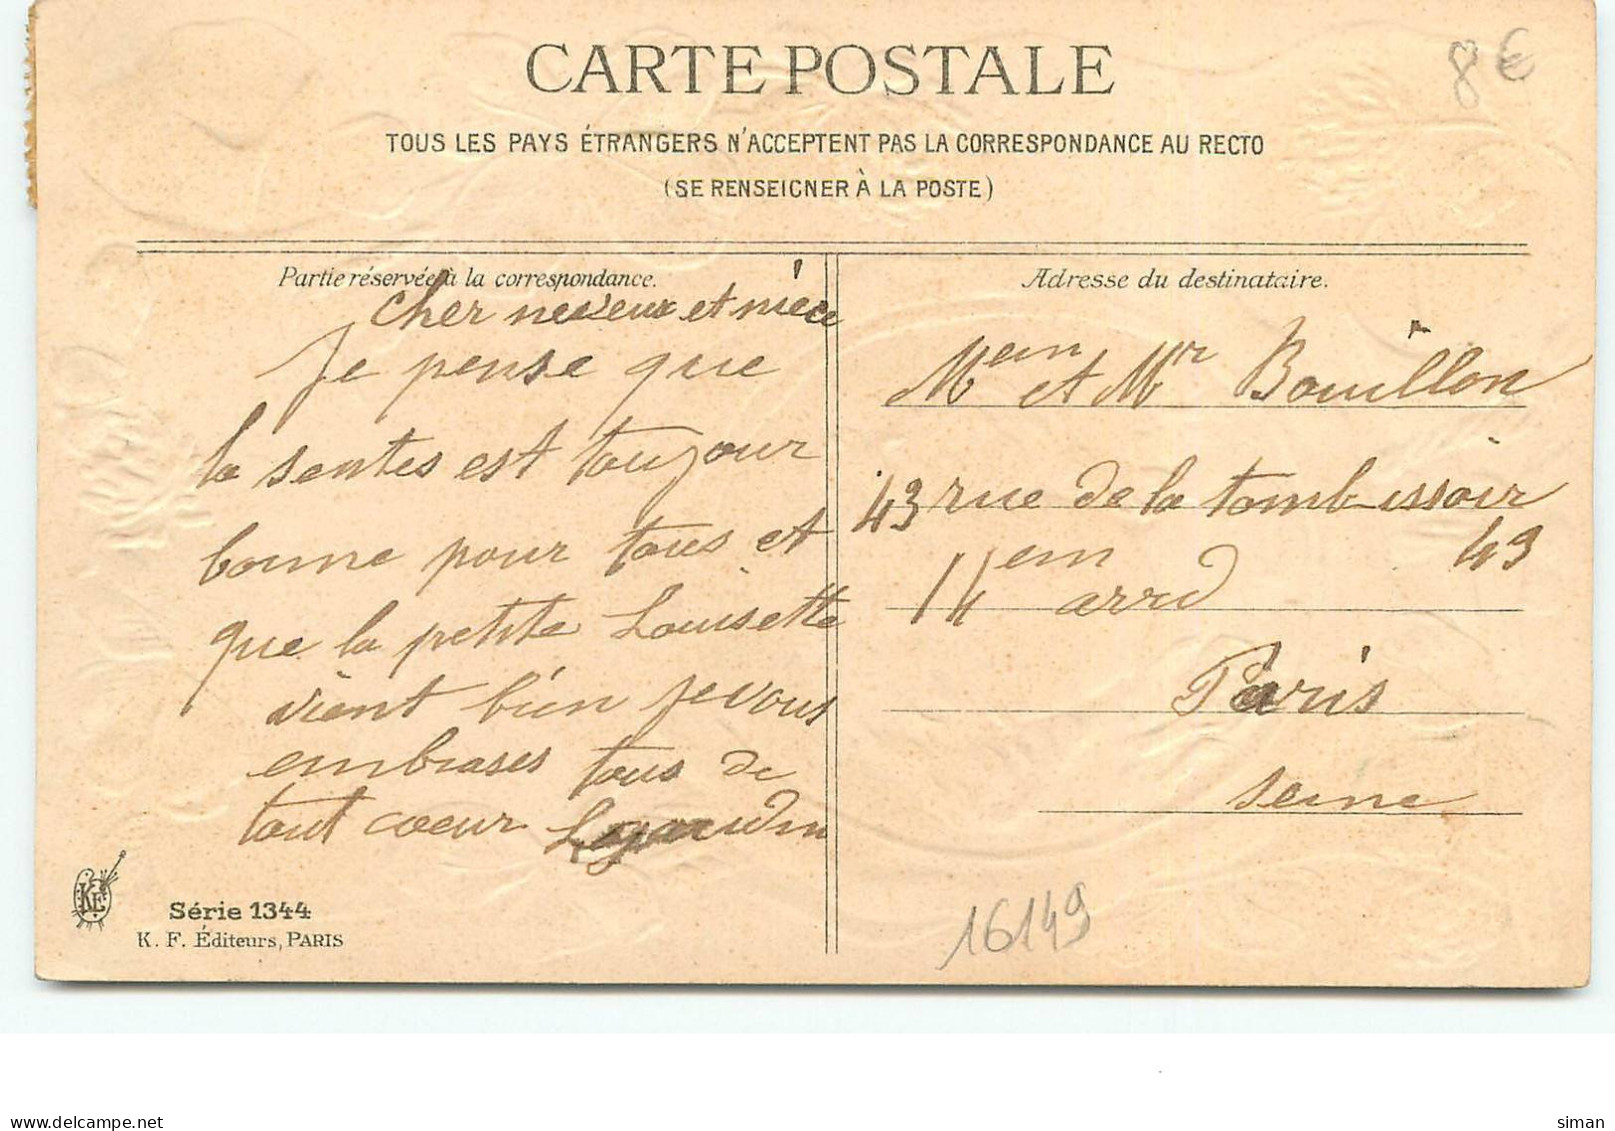 CARTE POSTALE
8€
TOUS LES PAYS ÉTRANGERS N'ACCEPTENT PAS LA CORRESPONDANCE AU RECTO
(SE RENSEIGNER À LA POSTE)
Partie réservée à la correspondance.
cher neveux et nièce
Je pense que
la sentes est toujour
bonne pour tous et
que la petite Louisette
vient bien je vous
embrases tous de
tout coeur
Adresse du destinataire.
Mem et Mr Bouillon
43 rue de la tomb-issoir
43
14em arrd
Paris
Seine
KF
Série 1344
K. F. Éditeurs, PARIS
16149
www.delcampe.net
siman